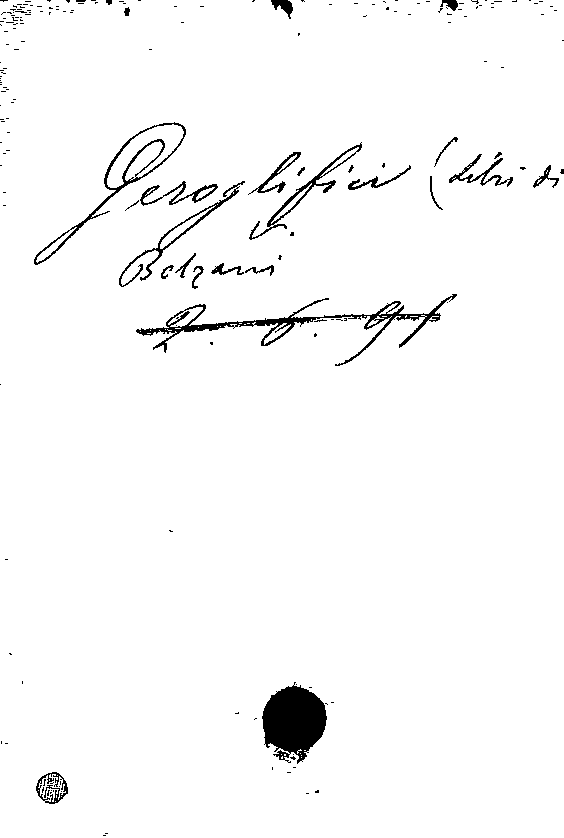 Geroglifici (Libri di
v.
Bolzani
2. 6. 9 5